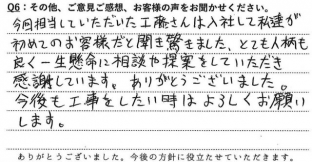 Q6：その他、ご意見ご感想、お客様の声をお聞かせください。
今回担当していただいた工藤さんは入社して私達が
初めてのお客様だと聞き驚きました、とても人柄も
良く一生懸命に相談や提案をしていただき
感謝しています。ありがとうございました。
今後も工事をしたい時はよろしくお願い
します。
ありがとうございました。今後の方針に役立たせていただきます。